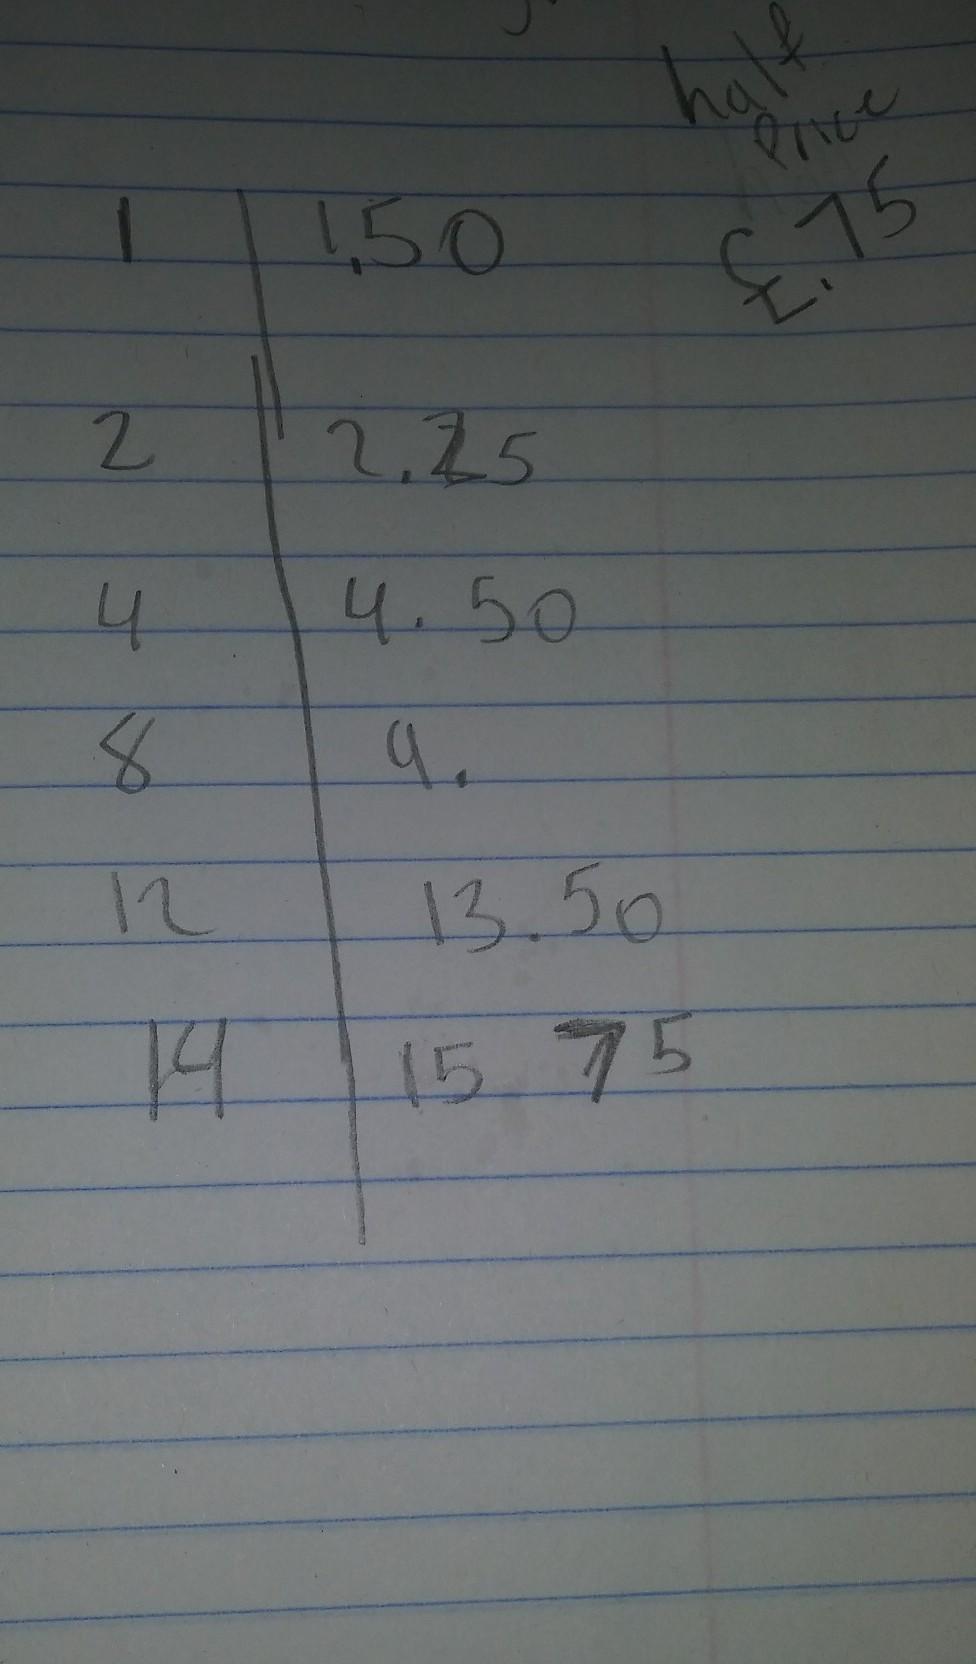 half
Price
£.75
1 1.50
2 2.25
4 4.50
8 9.
12 13.50
14 15 75